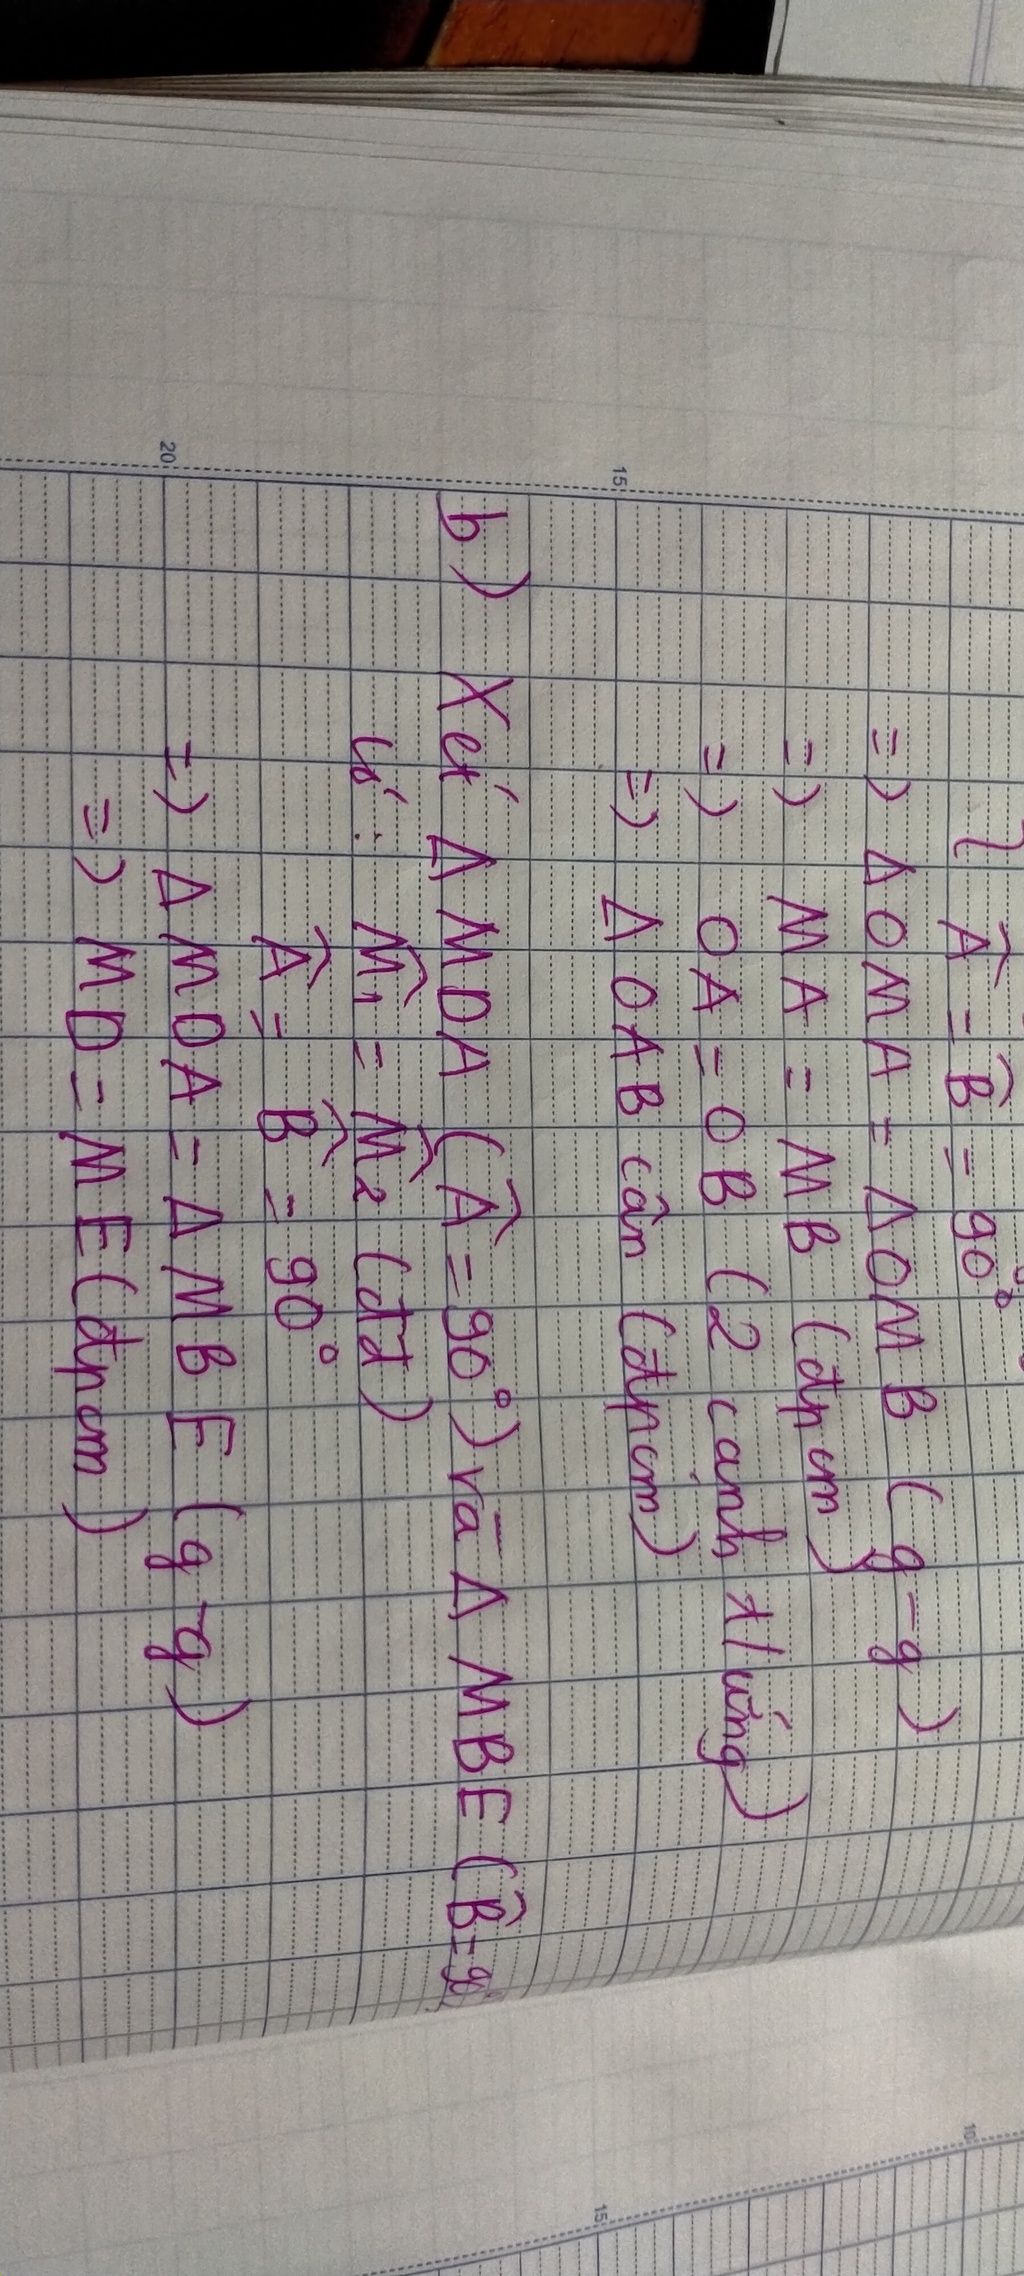 Â = B̂ = 90°
=) Δ OMA = Δ OMB (g-g)
=) MA = MB (đpcm)
=) OA = OB (2 cạnh t/ứng)
=) Δ OAB cân (đpcm)
15
b) Xét Δ MDA (Â = 90°) và Δ MBE (B̂ = 90°
có: M̂1 = M̂2 (đđ)
Â = B̂ = 90°
=) Δ MDA = Δ MBE (g-g)
20
=) MD = ME (đpcm)
10
15